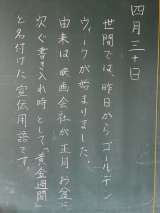 四月三十日
世間では、昨日からゴールデン
ウィークが始まりました。
由来は映画会社が正月、お盆に
次ぐ書き入れ時として「黄金週間」
と名付けた宣伝用語です。